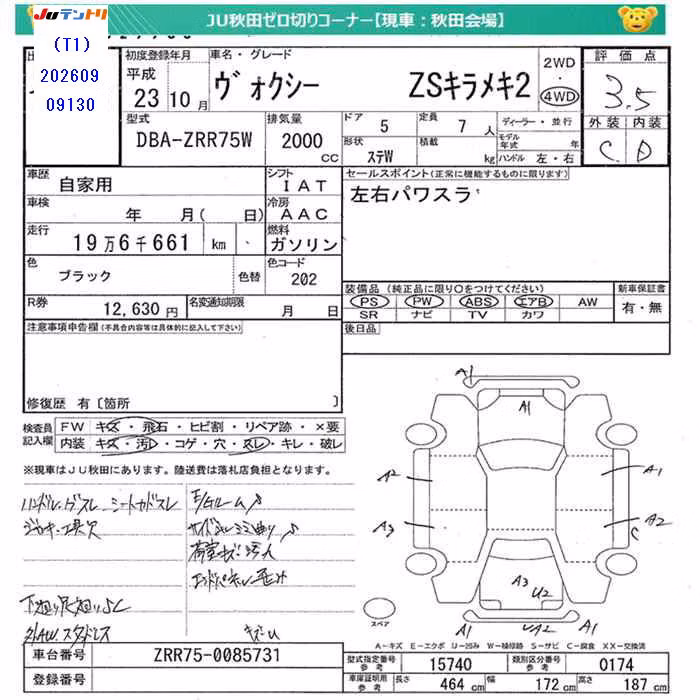 JUテントリ
JU秋田ゼロ切りコーナー【現車：秋田会場】
(T1)
202609
09130
初度登録年月
車名・グレード
2WD
評価点
平成
23 10月
ヴォクシー ZSキラメキ2
4WD
3.5
型式
排気量
ドア 5
定員 7人
ディーラー・並行
外装 内装
DBA-ZRR75W
2000 CC
形状 ステW
積載 kg
モデル年式 年
ハンドル 左・右
C D
車歴 自家用
シフト IAT
セールスポイント(正常に機能するものに限ります)
車検 年 月( 日)
冷房 AAC
左右パワスラ
走行 19万6千661 km
燃料 ガソリン
色 ブラック 色替
色コード 202
装備品(純正品に限り○をつけてください)
新車保証書
PS PW ABS エアB AW
有・無
SR ナビ TV カワ
R券 12,630円
名変通知期限 月 日
後日品
注意事項申告欄(不具合内容等は具体的に記入して下さい)
修復歴 有〔箇所 〕
検査員記入欄
FW キズ・飛石・ヒビ割・リペア跡・×要
内装 キズ・汚れ・コゲ・穴・スレ・キレ・破レ
※現車はJU秋田にあります。陸送費は落札店負担となります。
ジャッキ・工具欠
A1
A1
A2
A1
A3
A2
C
A3
U2
A1
UA2
A1
スペア
A-キズ E-エクボ U-凹み W-補修跡 S-サビ C-腐食 XX-交換済
車台番号 ZRR75-0085731
型式指定番号 参考 15740
類別区分番号 参考 0174
登録番号
車庫証明用 参考
長さ 464 cm
幅 172 cm
高さ 187 cm